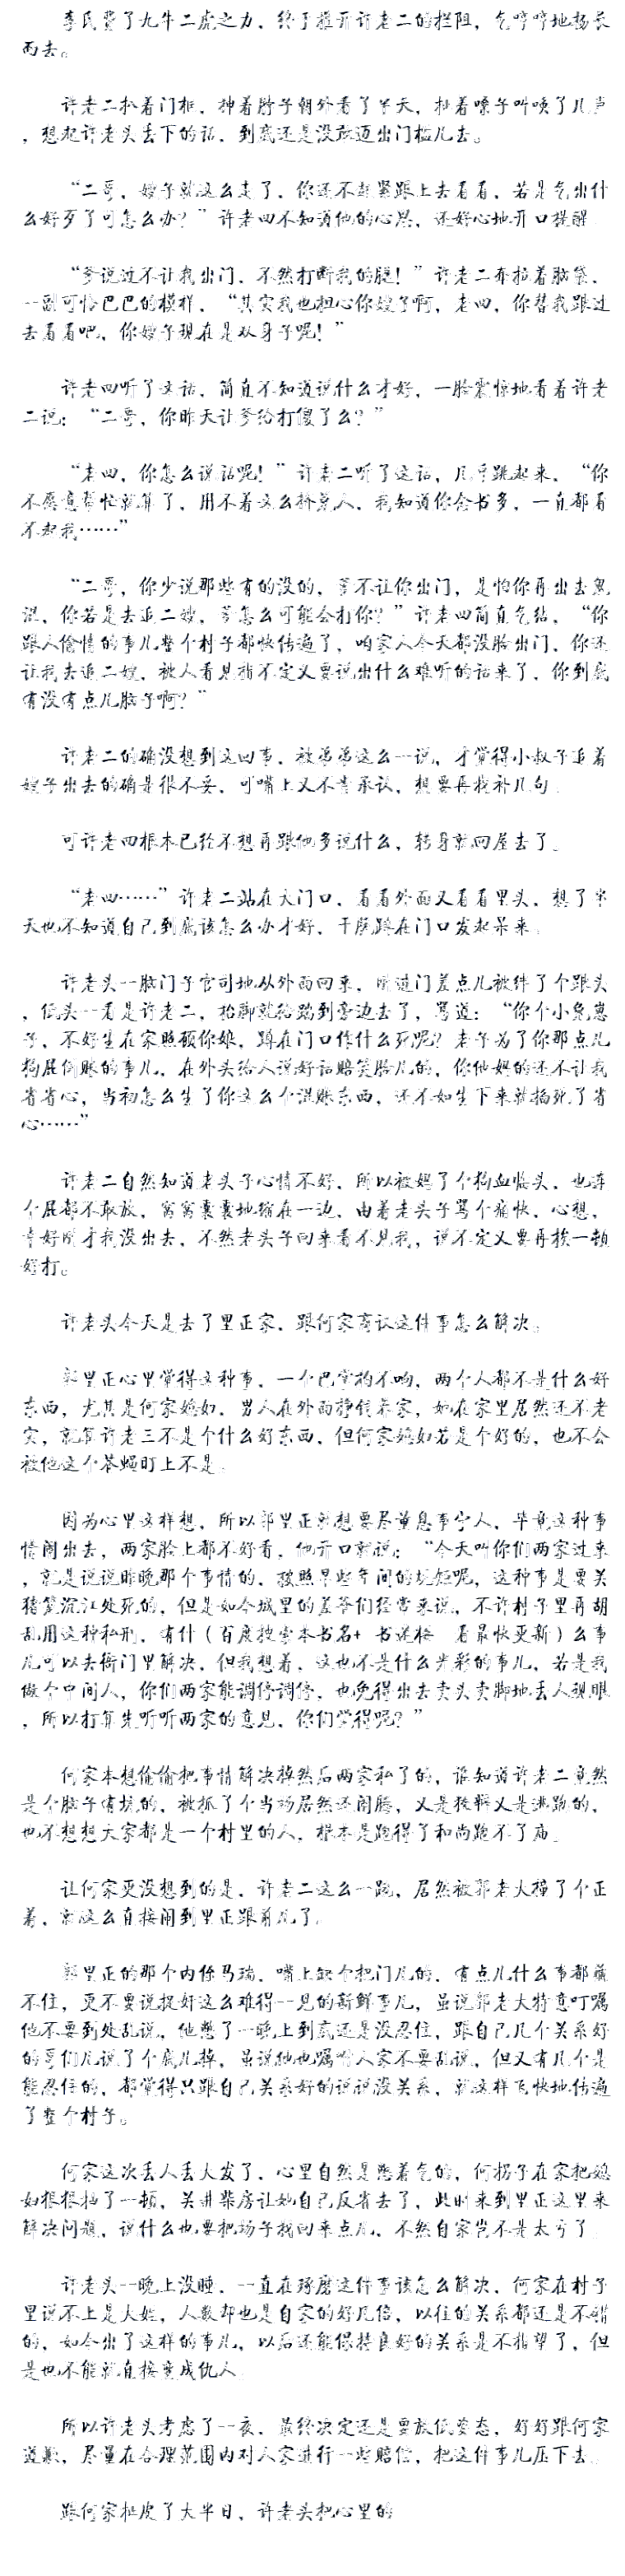 李氏费了九牛二虎之力，终于推开许老二的拦阻，气哼哼地扬长
而去。
许老二扒着门框，抻着脖子朝外看了半天，扯着嗓子叫唤了几声
，想起许老头丢下的话，到底还是没敢迈出门槛儿去。
“二哥，嫂子就这么走了，你还不赶紧跟上去看看，若是气出什
么好歹了可怎么办？”许老四不知道他的心思，还好心地开口提醒。
“爹说过不让我出门，不然打断我的腿！”许老二耷拉着脑袋，
一副可怜巴巴的模样，“其实我也担心你嫂子啊，老四，你替我跟过
去看看吧，你嫂子现在是双身子呢！”
许老四听了这话，简直不知道说什么才好，一脸震惊地看着许老
二说：“二哥，你昨天让爹给打傻了么？”
“老四，你怎么说话呢！”许老二听了这话，几乎跳起来，“你
不愿意帮忙就算了，用不着这么挤兑人，我知道你念书多，一直都看
不起我……”
“二哥，你少说那些有的没的，爹不让你出门，是怕你再出去鬼
混，你若是去追二嫂，爹怎么可能会打你？”许老四简直气结，“你
跟人偷情的事儿整个村子都快传遍了，咱家人今天都没脸出门，你还
让我去追二嫂，被人看见指不定又要说出什么难听的话来了，你到底
有没有点儿脑子啊？”
许老二的确没想到这回事，被弟弟这么一说，才觉得小叔子追着
嫂子出去的确是很不妥，可嘴上又不肯承认，想要再找补几句。
可许老四根本已经不想再跟他多说什么，转身就回屋去了。
“老四……”许老二站在大门口，看看外面又看看里头，想了半
天也不知道自己到底该怎么办才好，干脆蹲在门口发起呆来。
许老头一脑门子官司地从外面回来，刚进门差点儿被绊了个跟头
，低头一看是许老二，抬脚就给踹到旁边去了，骂道：“你个小兔崽
子，不好生在家照顾你娘，蹲在门口作什么死呢？老子为了你那点儿
狗屁倒灶的事儿，在外头给人说好话赔笑脸儿的，你他妈的还不让我
省省心，当初怎么生了你这么个混账东西，还不如生下来就掐死了省
心……”
许老二自然知道老头子心情不好，所以被骂了个狗血临头，也连
个屁都不敢放，窝窝囊囊地缩在一边，由着老头子骂个痛快，心想，
幸好刚才我没出去，不然老头子回来看不见我，说不定又要再挨一顿
好打。
许老头今天是去了里正家，跟何家商议这件事怎么解决。
郭里正心里觉得这种事，一个巴掌拍不响，两个人都不是什么好
东西，尤其是何家媳妇，男人在外面挣钱养家，她在家里居然还不老
实，就算许老三不是个什么好东西，但何家媳妇若是个好的，也不会
被他这个苍蝇盯上不是。
因为心里这样想，所以郭里正就想要尽量息事宁人，毕竟这种事
情闹出去，两家脸上都不好看，他开口就说：“今天叫你们两家过来
，就是说说昨晚那个事情的，按照早些年间的规矩呢，这种事是要关
猪笼沉江处死的，但是如今城里的差爷们经常来说，不许村子里再胡
乱用这种私刑，有什（百度搜索本书名+ 书迷楼 看最快更新）么事
儿可以去衙门里解决，但我想着，这也不是什么光彩的事儿，若是我
做个中间人，你们两家能调停调停，也免得出去卖头卖脚地丢人现眼
，所以打算先听听两家的意见，你们觉得呢？”
何家本想偷偷把事情解决掉然后两家私了的，谁知道许老二竟然
是个脑子有坑的，被抓了个当场居然还闹腾，又是狡辩又是逃跑的，
也不想想大家都是一个村里的人，根本是跑得了和尚跑不了庙。
让何家更没想到的是，许老二这么一跑，居然被郭老大撞了个正
着，就这么直接闹到里正跟前儿了。
郭里正的那个内侄马瑞，嘴上缺个把门儿的，有点儿什么事都藏
不住，更不要说捉奸这么难得一见的新鲜事儿，虽说郭老大特意叮嘱
他不要到处乱说，他憋了一晚上到底还是没忍住，跟自己几个关系好
的哥们儿说了个底儿掉，虽说他也嘱咐人家不要乱说，但又有几个是
能忍住的，都觉得只跟自己关系好的说说没关系，就这样飞快地传遍
了整个村子。
何家这次丢人丢大发了，心里自然是憋着气的，何拐子在家把媳
妇狠狠抽了一顿，关进柴房让她自己反省去了，此时来到里正这里来
解决问题，说什么也要把场子找回来点儿，不然自家岂不是太亏了。
许老头一晚上没睡，一直在琢磨这件事该怎么解决，何家在村子
里说不上是大姓，人数却也是自家的好几倍，以往的关系都还是不错
的，如今出了这样的事儿，以后还能保持良好的关系是不指望了，但
是也不能就直接变成仇人。
所以许老头考虑了一夜，最终决定还是要放低姿态，好好跟何家
道歉，尽量在合理范围内对人家进行一些赔偿，把这件事儿压下去。
跟何家扯皮了大半日，许老头把心里的